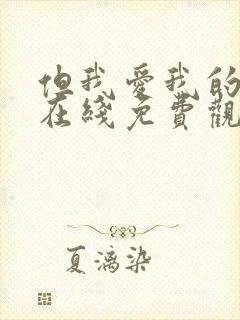 但我愛我的
在綫免費觀
夏漓染